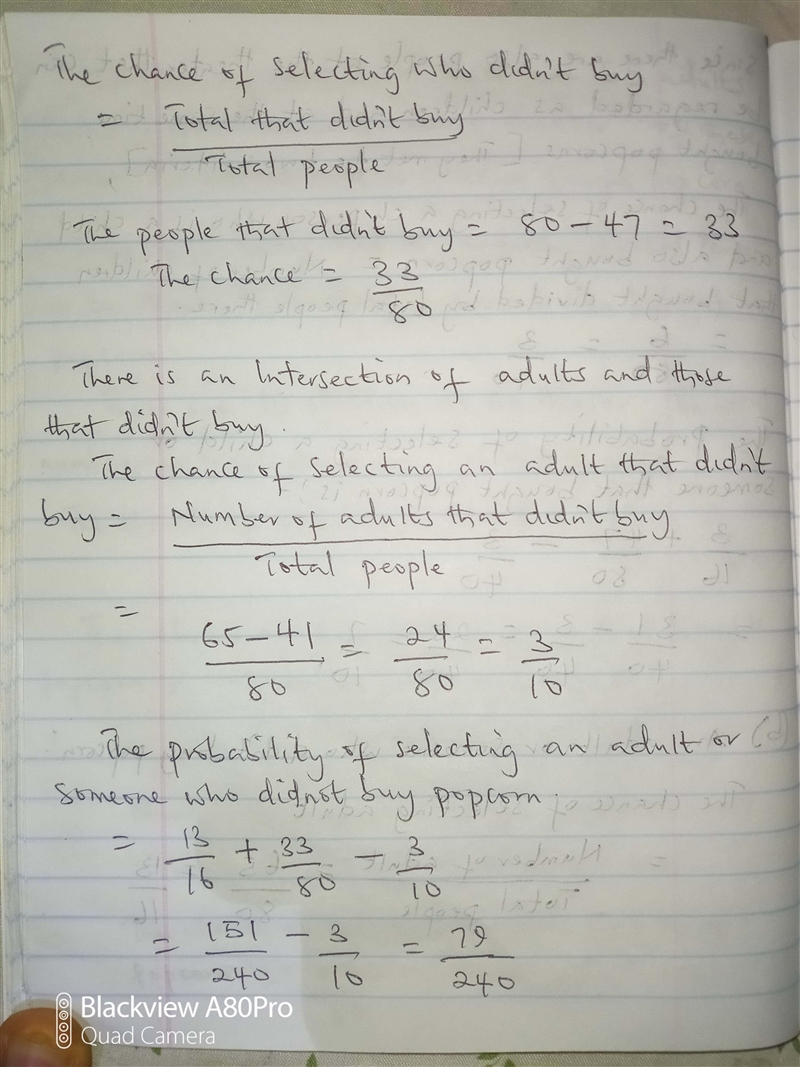 The chance of selecting who didn't buy
= Total that didn't buy
Total people
The people that didn't buy = 80 - 47 = 33
The chance = 33
80
There is an Intersection of adults and those
that didn't buy.
The chance of selecting an adult that didn't
buy = Number of adults that didn't buy
Total people
=
65 - 41 = 24 = 3
80 80 10
The probability of selecting an adult or
someone who didnot buy popcorn.
= 13 + 33 - 3
16 80 10
= 151 - 3 = 79
240 10 240
Blackview A80Pro
Quad Camera